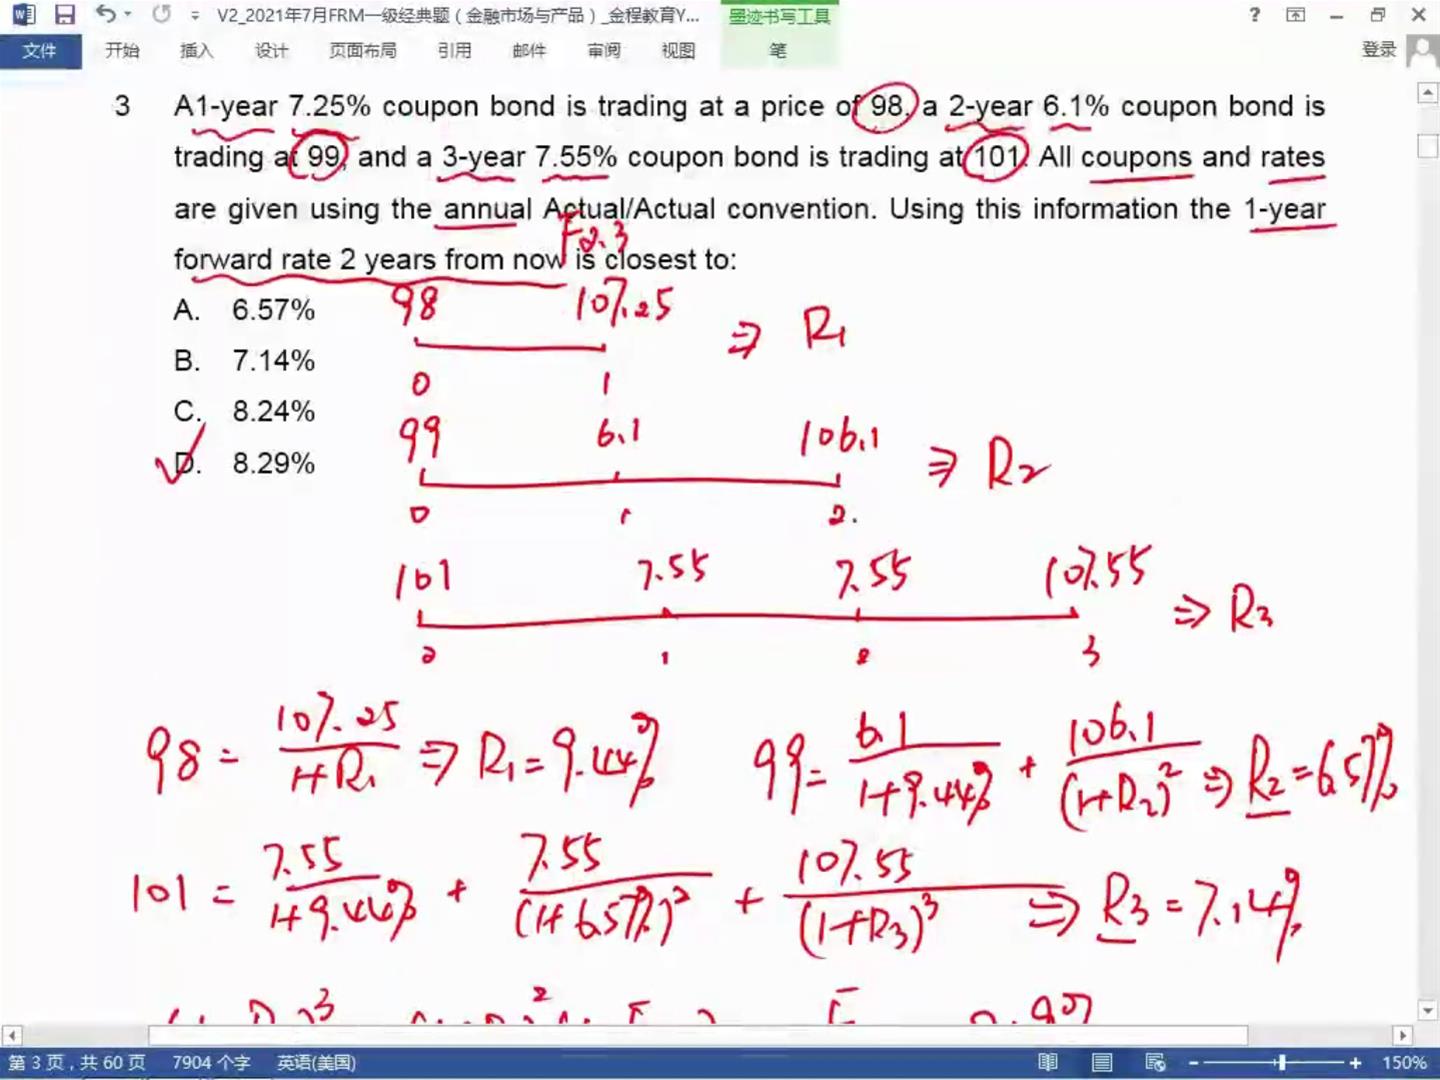 V2_2021年7月FRM一级经典题（金融市场与产品）_金程教育Y... 墨迹书写工具
文件 开始 插入 设计 页面布局 引用 邮件 审阅 视图 笔 登录
3 A1-year 7.25% coupon bond is trading at a price of 98, a 2-year 6.1% coupon bond is
trading at 99, and a 3-year 7.55% coupon bond is trading at 101. All coupons and rates
are given using the annual Actual/Actual convention. Using this information the 1-year
F2.3
forward rate 2 years from now is closest to:
A. 6.57%
B. 7.14%
C. 8.24%
D. 8.29%
98 107.25 ⇒ R1
0 1
99 6.1 106.1 ⇒ R2
0 1 2.
101 7.55 7.55 107.55 ⇒ R3
1 2 3
98 = 107.25/(1+R1) ⇒ R1 = 9.44% 99 = 6.1/(1+9.44%) + 106.1/(1+R2)² ⇒ R2 = 6.57%
101 = 7.55/(1+9.44%) + 7.55/(1+6.57%)² + 107.55/(1+R3)³ ⇒ R3 = 7.14%
第 3 页，共 60 页 7904 个字 英语(美国) 150%